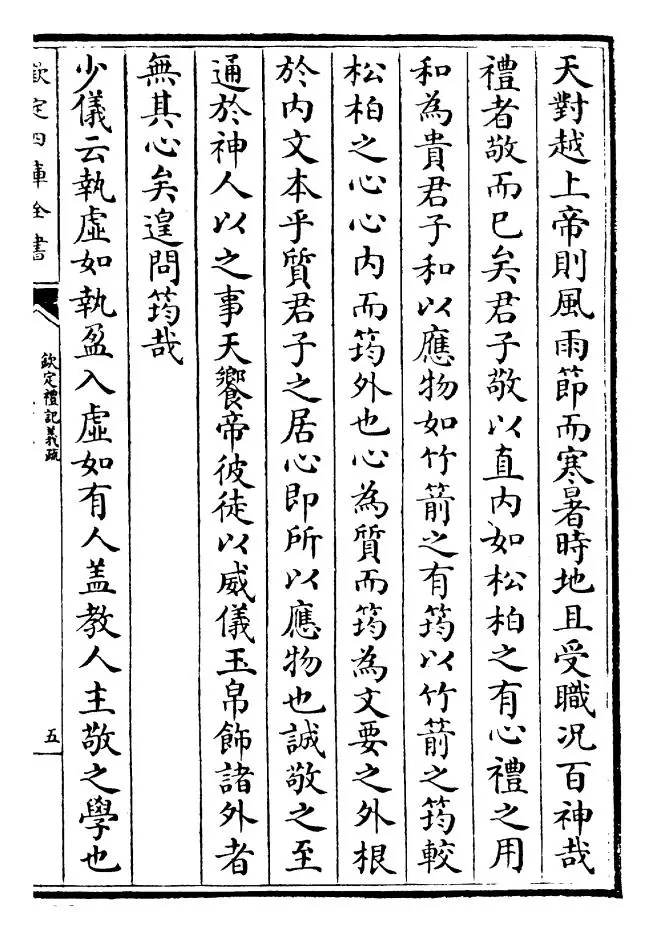 天對越上帝則風雨節而寒暑時地且受職况百神哉
禮者敬而已矣君子敬以直内如松柏之有心禮之用
和為貴君子和以應物如竹箭之有筠以竹箭之筠較
松柏之心心内而筠外也心為質而筠為文要之外根
於内文本乎質君子之居心即所以應物也誠敬之至
通於神人以之事天饗帝彼徒以威儀玉帛飾諸外者
無其心矣遑問筠哉
少儀云執虛如執盈入虛如有人盖教人主敬之學也
欽定四庫全書
欽定禮記義疏
五